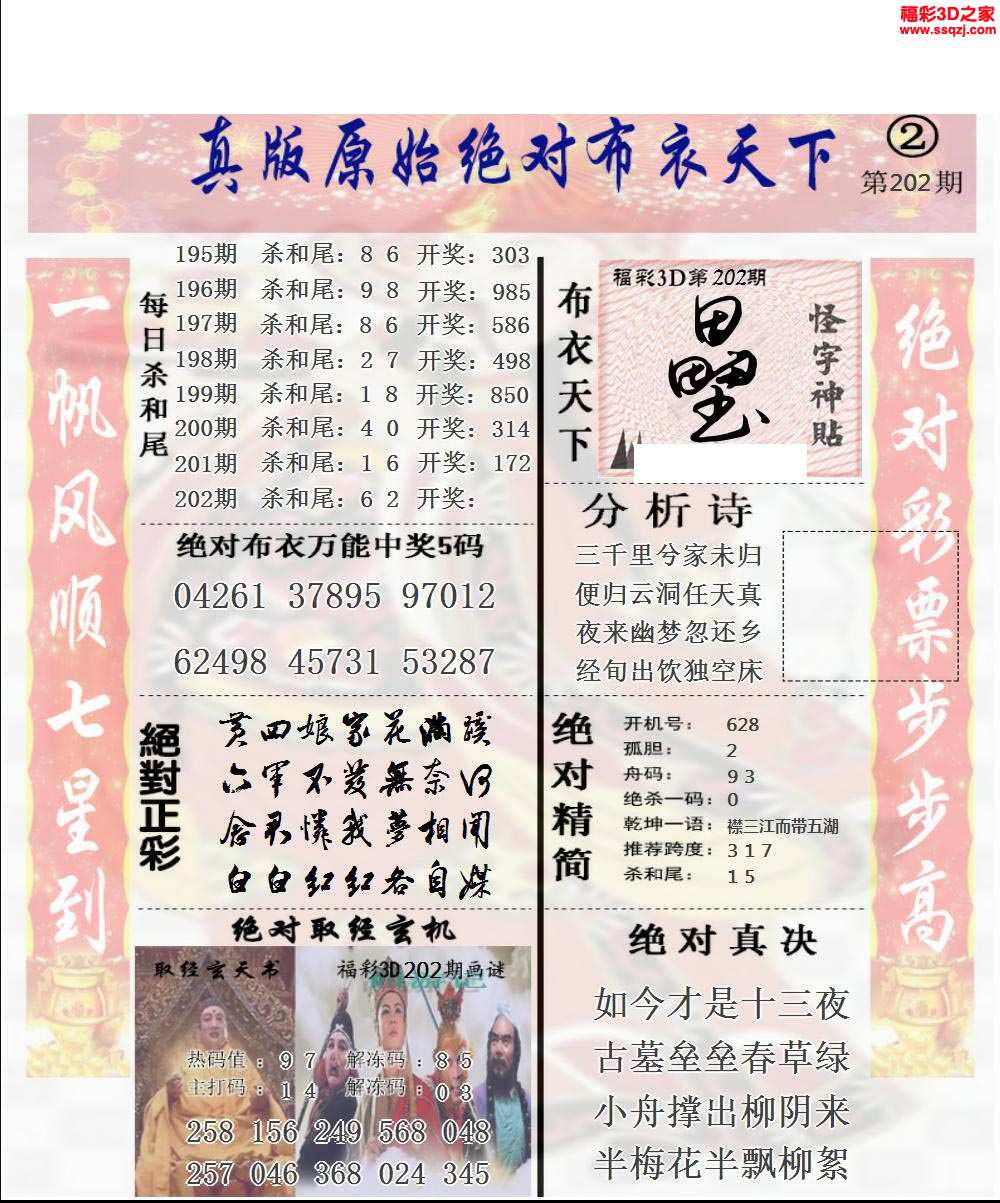 福彩3D之家
www.ssqzj.com
真版原始绝对布衣天下
②
第202期
一帆风顺七星到
每日杀和尾
195期 杀和尾：8 6 开奖：303
196期 杀和尾：9 8 开奖：985
197期 杀和尾：8 6 开奖：586
198期 杀和尾：2 7 开奖：498
199期 杀和尾：1 8 开奖：850
200期 杀和尾：4 0 开奖：314
201期 杀和尾：1 6 开奖：172
202期 杀和尾：6 2 开奖：
绝对布衣万能中奖5码
04261 37895 97012
62498 45731 53287
絕對正彩
黄四娘家花满蹊
六军不发無奈何
念君憐我夢相闻
白白红红各自媒
绝对取经玄机
取经玄天书
福彩3D202期画谜
热码值：9 7 解冻码：8 5
主打码：1 4 解冻码：0 3
258 156 249 568 048
257 046 368 024 345
布衣天下
福彩3D第202期
怪字神貼
分析诗
三千里兮家未归
便归云洞任天真
夜来幽梦忽还乡
经旬出饮独空床
绝对精简
开机号：628
孤胆：2
舟码：9 3
绝杀一码：0
乾坤一语：襟三江而带五湖
推荐跨度：3 1 7
杀和尾：1 5
绝对真决
如今才是十三夜
古墓垒垒春草绿
小舟撑出柳阴来
半梅花半飘柳絮
绝对彩票步步高